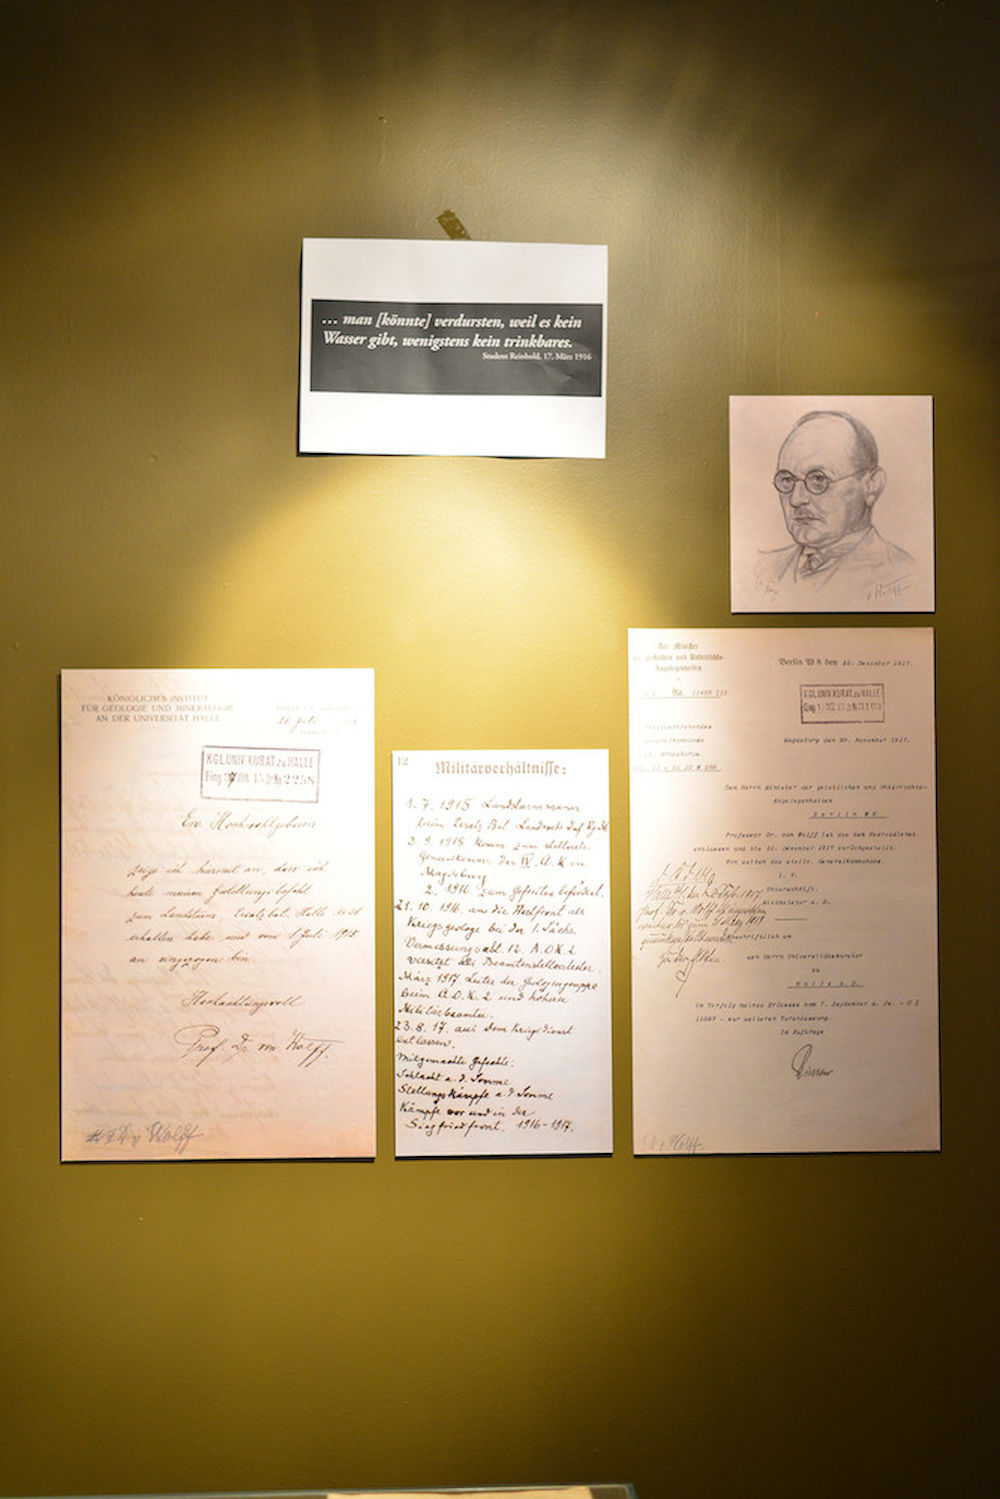 ... man [könnte] verdursten, weil es kein
Wasser gibt, wenigstens kein trinkbares.
Student Reinhold, 17. März 1916
v Wolff
KÖNIGLICHES INSTITUT
FÜR GEOLOGIE UND MINERALOGIE
AN DER UNIVERSITÄT HALLE
26 Juli
KGL.UNIV.KURAT.zu HALLE
Eing. 15 2258
Ew. Hochwohlgeboren
zeige ich hiermit an, dass ich
heute meinen Gestellungsbefehl
zum Landsturm, Ersatzbat. Halle
erhalten habe und vom 1 Juli 1915
an eingezogen bin.
Hochachtungsvoll
Prof. Dr. von Wolff.
v Wolff
12
Militärverhältnisse:
1. 7. 1915 Landsturmmann
beim Ersatz Bat. Landwehr Inf. Rg. 36
2. 9. 1915 Komm. zum stellvertr.
Generalkomm. des IV. A. K. in
Magdeburg
2. 1916 zum Gefreiten befördert.
21. 10. 1916 an die Westfront als
Kriegsgeologe bei der 1. Sächs.
Vermessungsabt. 12. A.O.K. 2
versetzt als Beamtenstellvertreter.
März 1917 Leiter der Geologengruppe
beim A.O.K. 2 und höherer
Militärbeamter.
23. 8. 17. aus dem Kriegsdienst
entlassen.
Mitgemachte Gefechte:
Schlacht a. d. Somme
Stellungskämpfe a. d. Somme
Kämpfe vor und in der
Siegfriedfront. 1916-1917.
Der Minister
der geistlichen und Unterrichts-
Angelegenheiten
Berlin W 8 den 10. Dezember 1917.
Nr. 11469
KGL.UNIV.KURAT.zu HALLE
Eing.
Stellvertretendes
Generalkommando
IV. Armeekorps
Magdeburg den 20. November 1917.
Dem Herrn Minister der geistlichen und Unterrichts-
Angelegenheiten
Berlin W8
Professor Dr. von Wolff ist aus dem Heeresdienst
entlassen und bis 31. Dezember 1917 zurückgestellt.
Von seiten des stellv. Generalkommandos.
I. V.
Unterschrift.
Rittmeister a. D.
Abschriftlich an
den Herrn Universitätskurator
in
Halle a.S.
im Verfolg meines Erlasses vom 7. September d. Js. - U I
- zur weiteren Veranlassung.
Im Auftrage
v Wolff.